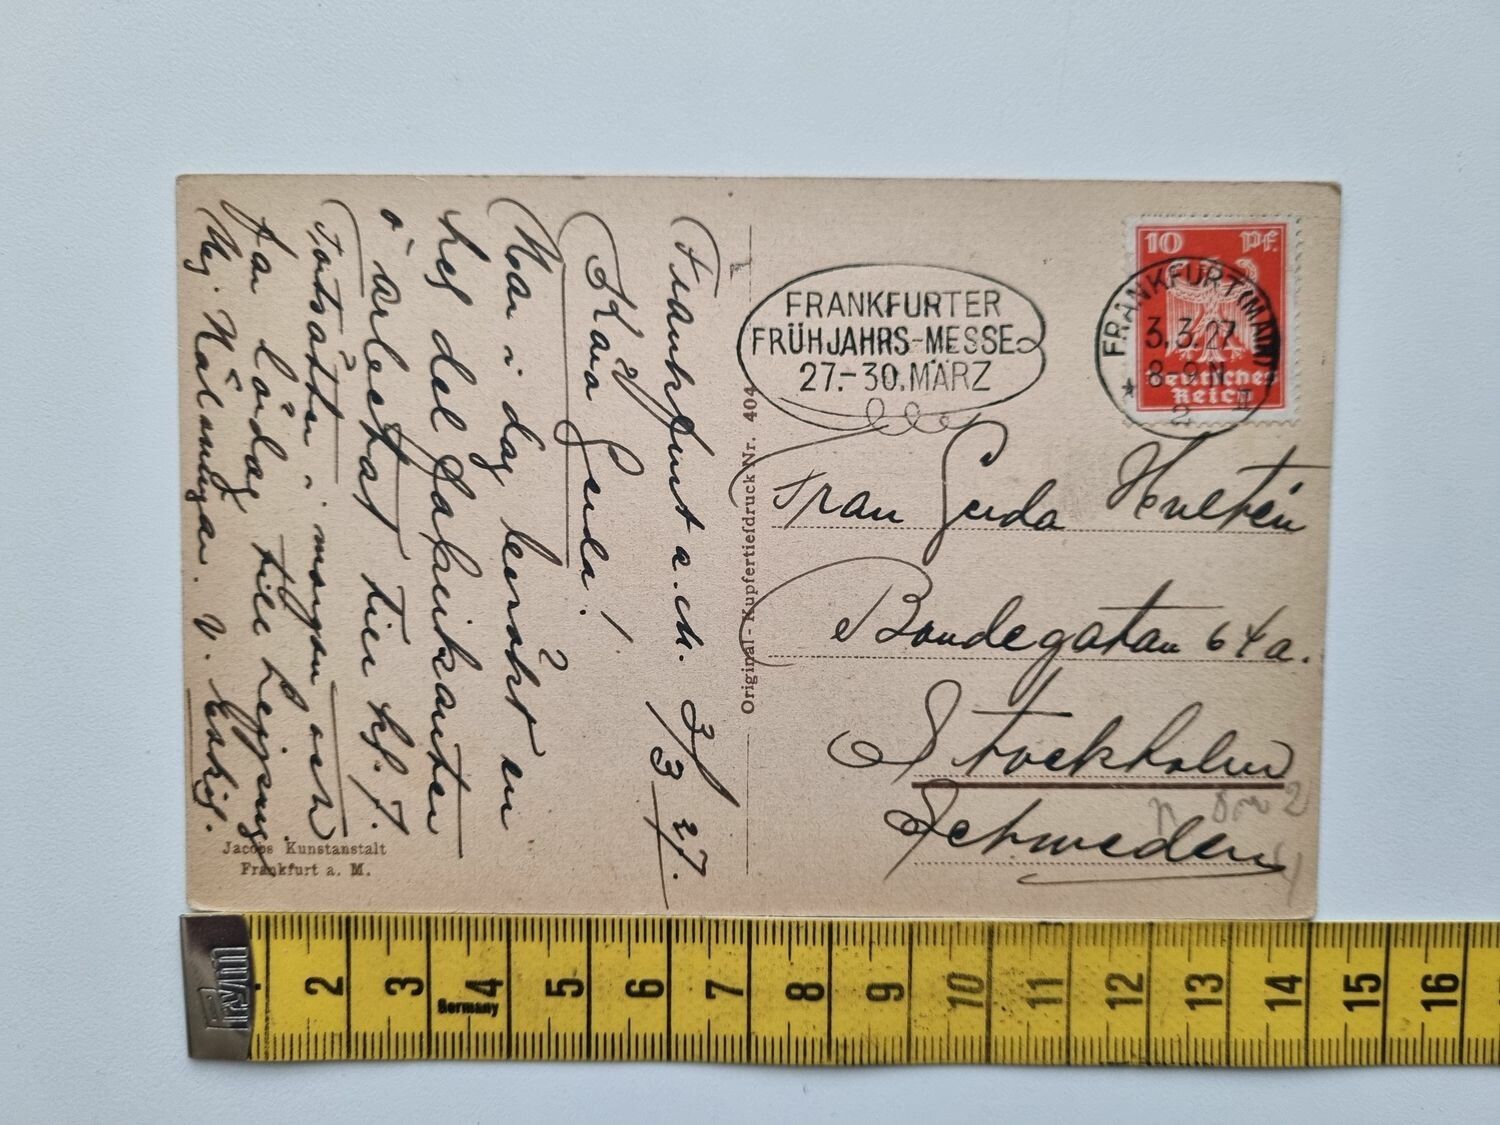 Frankfurt a. M. 3/3 27.
Kära Gerda!
Har i dag besökt en
hel del fabrikanter
o arbetat hela kl. 7.
Fortsätter i morgon och
far lördag till Leipzig
Hälsningar
FRANKFURTER
FRÜHJAHRS-MESSE
27.-30. MÄRZ
FRANKFURT (MAIN)
3.3.27
8-9 N
2 II
10 Pf.
Deutsches
Reich
Frau Gerda Hultén
Bondegatan 64a.
Stockholm
Schweden
Original-Kupfertiefdruck Nr. 404
Jacobs Kunstanstalt
Frankfurt a. M.
2 3 4 5 6 7 8 9 10 11 12 13 14 15 16
Germany